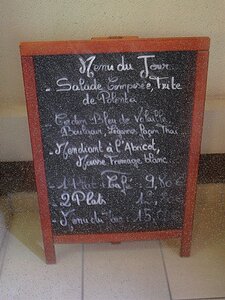 Menu du Jour
- Salade Composée, Tribe
de Polenta
Cordon Bleu de Volaille,
Boulgour, Légumes façon Thaï...
- Mendiant à l'Abricot,
Mousse Fromage blanc...
- 1 Plat - Café 9,80 €
- 2 Plats
- Menu du Jour